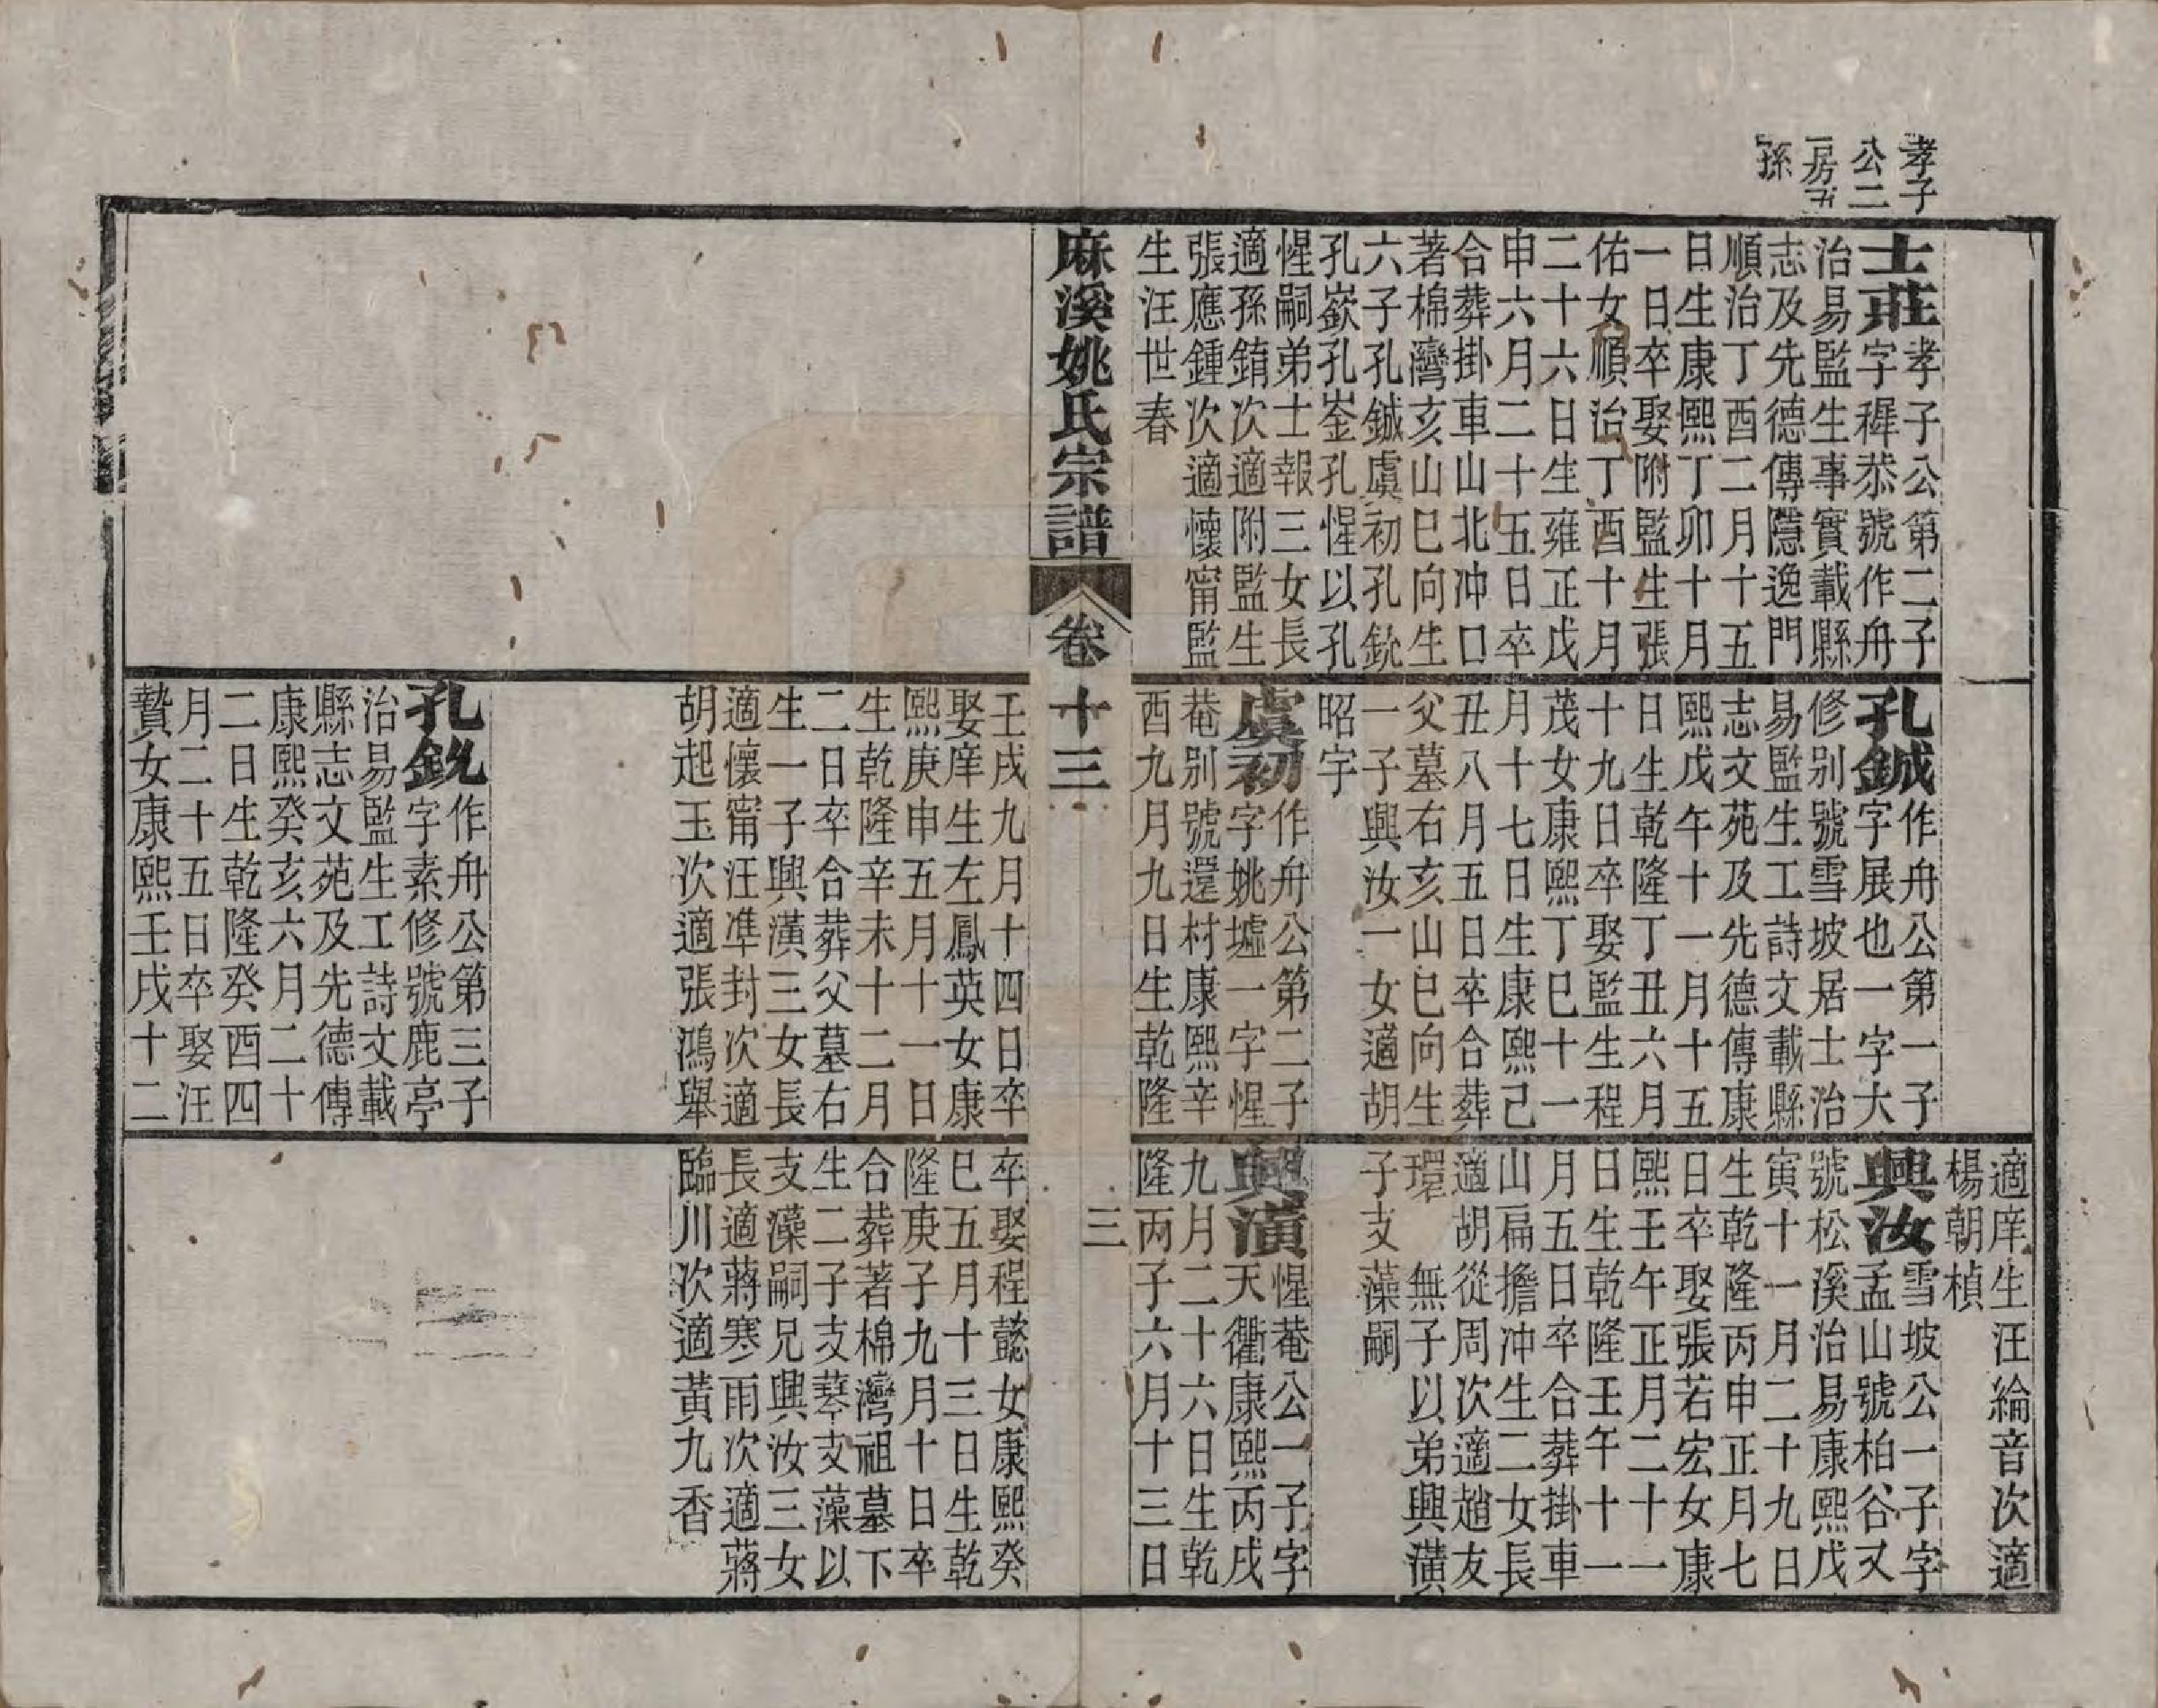 孝子
公二
房五
孫
士莊孝子公第二子
字穉恭號作舟
治易監生事實載縣
志及先德傳隱逸門
順治丁酉二月十五
日生康熙丁卯十月
一日卒娶附監生張
佑女順治丁酉十月
二十六日生雍正戊
申六月二十五日卒
合葬掛車山北冲口
著棉灣亥山巳向生
六子孔鋮虞初孔鋭
孔嶔孔崟孔惺以孔
惺嗣弟士報三女長
適孫錥次適附監生
張應鍾次適懷甯監
生汪世春
孔鋮作舟公第一子
字展也一字大
修别號雪坡居士治
易監生工詩文載縣
志文苑及先德傳康
熙戊午十一月十五
日生乾隆丁丑六月
十九日卒娶監生程
茂女康熙丁巳十一
月十七日生康熙己
丑八月五日卒合葬
父墓右亥山巳向生
一子興汝一女適胡
昭宇
虞初作舟公第二子
字姚墟一字惺
菴别號還村康熙辛
酉九月九日生乾隆
壬戌九月十四日卒
娶庠生左鳳英女康
熙庚申五月十一日
生乾隆辛未十二月
二日卒合葬父墓右
生一子興潢三女長
適懷甯汪凖封次適
胡起玉次適張鴻舉
孔鋭作舟公第三子
字素修號鹿亭
治易監生工詩文載
縣志文苑及先德傳
康熙癸亥六月二十
二日生乾隆癸酉四
月二十五日卒娶汪
贄女康熙壬戌十二
適庠生汪綸音次適
楊朝楨
興汝雪坡公一子字
孟山號柏谷又
號松溪治易康熙戊
寅十一月二十九日
生乾隆丙申正月七
日卒娶張若宏女康
熙壬午正月二十一
日生乾隆壬午十一
月五日卒合葬掛車
山扁擔冲生二女長
適胡從周次適趙友
環　無子以弟興潢
子支藻嗣
興潢惺菴公一子字
天衢康熙丙戌
九月二十六日生乾
隆丙子六月十三日
卒娶程懿女康熙癸
巳五月十三日生乾
隆庚子九月十日卒
合葬著棉灣祖墓下
生二子支莘支藻以
支藻嗣兄興汝三女
長適蔣寒雨次適蔣
臨川次適黃九香
麻溪姚氏宗譜
卷十三
三